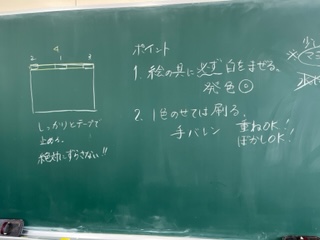 4
2 1 3
しっかりとテープで
止める。
絶対にずらさない!!
ポイント
1. 絵の具に必ず白をませる。
発色◎
2. 1色のせては刷る。
手バレン 重ねOK!
ぼかしOK!